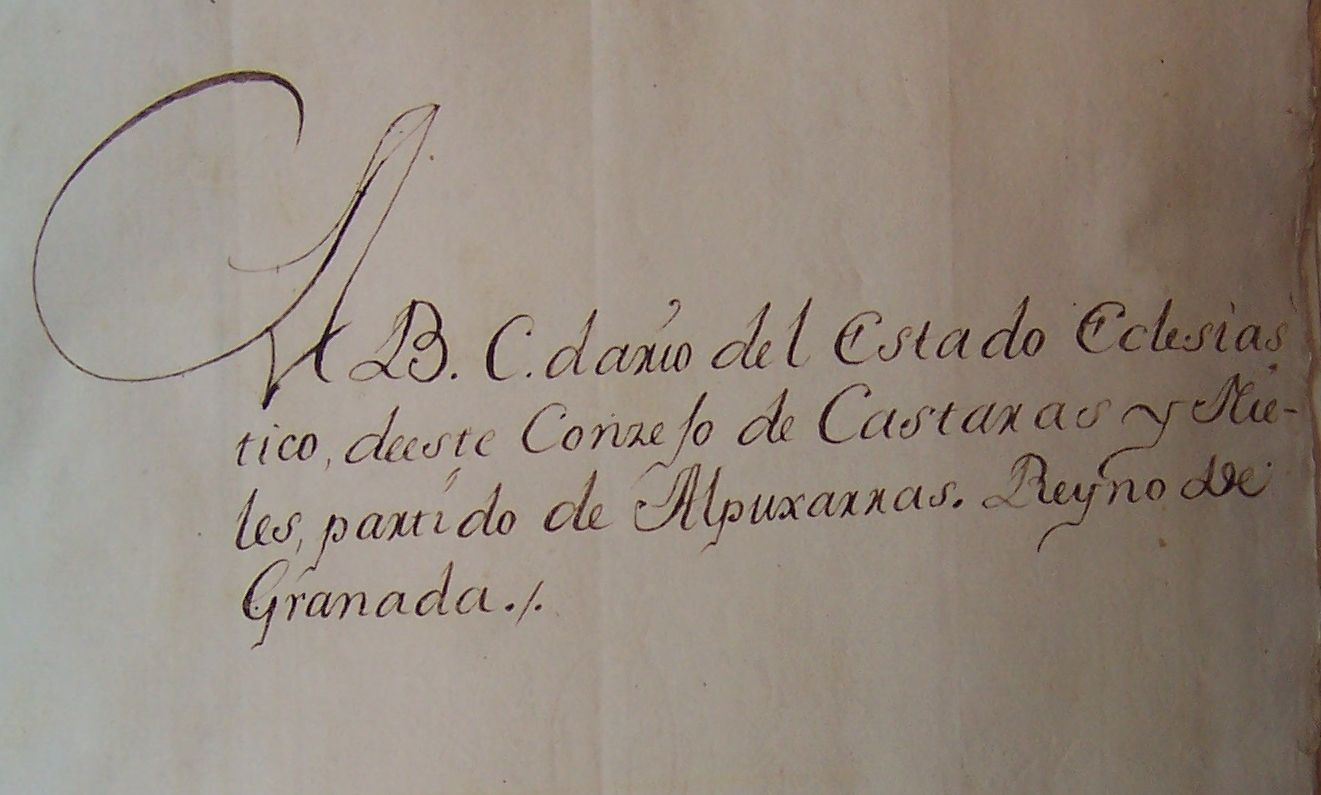 A B. C. dario del Estado Eclesias
tico, deeste Conzejo de Castaras y Nie-
les, partido de Alpuxarras. Reyno de
Granada./.